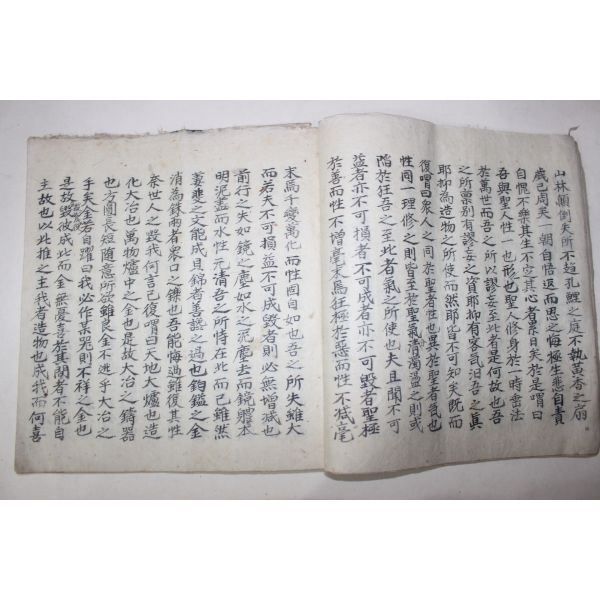 山林顚倒失所不趨孔鯉之庭不執黃香之扇
歲已周矣一朝自悟返而思之悔極生恧自責
自愧不樂其生不定其心者累日矣於是喟曰
吾與聖人性一也形也聖人修身於一時垂法
於萬世而吾之所以謬妄至此者是何故也吾
之所禀別有謬妄之資耶抑有客氣汩吾之眞
耶抑爲造物之所使而然耶皆不可知矣旣而
復喟曰衆人之同於聖者性也異於聖者氣也
性同一理修之則皆至於聖氣有淸濁蕩之則或
陷於狂吾之至此者氣之所使也夫且聞不可
益者亦不可損者不可成者亦不可毁者聖極
於善而性不增毫末爲狂極於惡而性不減毫
末爲千變萬化而性固自如也吾之所失雖大
而若夫不可損益不可成毁者則必無增減也
前行之失如鏡之塵如水之泥塵去而鏡體本
明泥盡而水性元淸吾之所恃在此而已雖然
萋斐之文能成貝錦者善譖之過也鈞鎰之金
消爲銖兩者衆口之鑠也吾能悔過雖復其性
奈世人之毁我何言已復喟曰天地大爐也造
化大冶也萬物爐中之金也是故大冶之鑄器
也方圓長短隨意所欲雖良金不逃乎大冶之
手矣金若自躍曰我必作某器則不祥之金也
是故毁彼成此而金無憂喜於其間者不能自
主故也以此推之主我者造物也成我而何喜